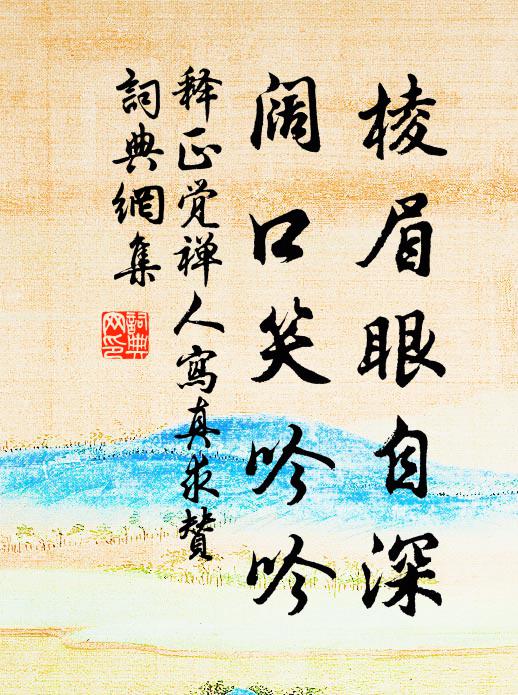 棱眉眼自深
阔口笑吟吟
释正觉禅人寫真求赞
詞典網集
詞典網印